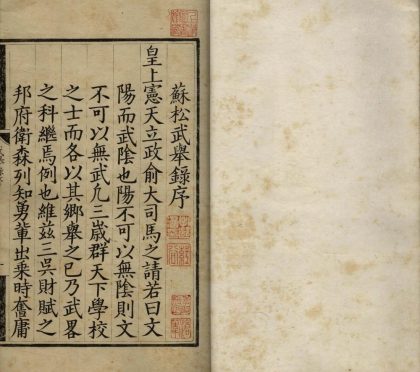 蘇松武舉錄序
皇上憲天立政俞大司馬之請若曰文
陽而武陰也陽不可以無陰則文
不可以無武凡三歲群天下學校
之士而各以其鄉舉之已乃武畧
之科繼焉例也維茲三吳財賦之
邦府衛森列知勇輩出來時奮庸